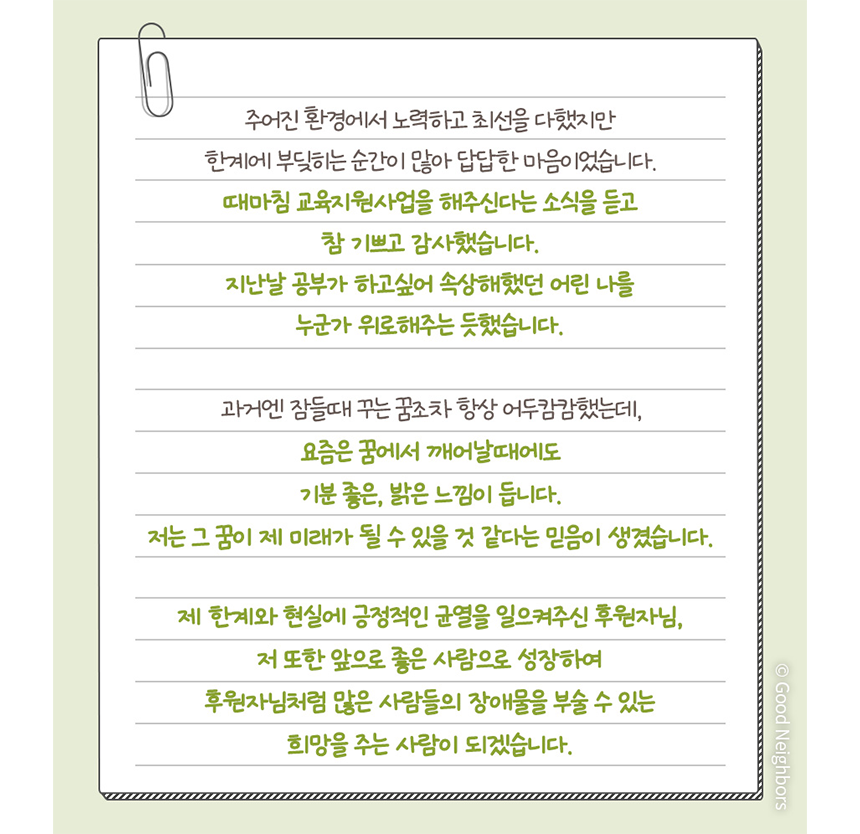 주어진 환경에서 노력하고 최선을 다했지만
한계에 부딪히는 순간이 많아 답답한 마음이었습니다.
때마침 교육지원사업을 해주신다는 소식을 듣고
참 기쁘고 감사했습니다.
지난날 공부가 하고싶어 속상해했던 어린 나를
누군가 위로해주는 듯했습니다.
과거엔 잠들때 꾸는 꿈조차 항상 어두캄캄했는데,
요즘은 꿈에서 깨어날때에도
기분 좋은, 밝은 느낌이 듭니다.
저는 그 꿈이 제 미래가 될 수 있을 것 같다는 믿음이 생겼습니다.
제 한계와 현실에 긍정적인 균열을 일으켜주신 후원자님,
저 또한 앞으로 좋은 사람으로 성장하여
후원자님처럼 많은 사람들의 장애물을 부술 수 있는
희망을 주는 사람이 되겠습니다.
© Good Neighbors